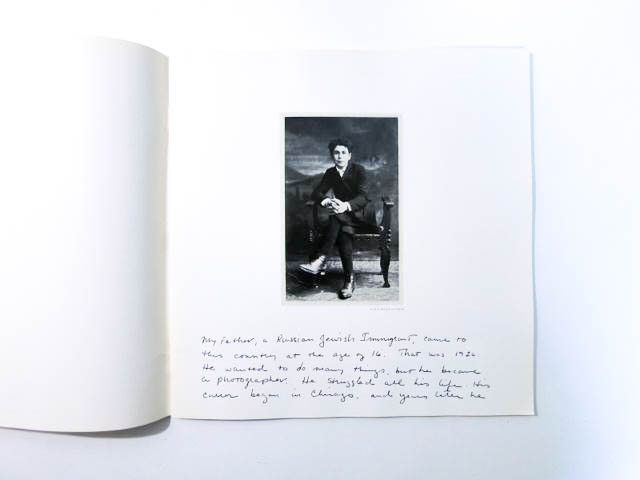 My Father, a Russian Jewish Immigrant, came to
this country at the age of 16. That was 1920.
He wanted to do many things, but he became
a photographer. He struggled all his life. His
career began in Chicago, and years later he